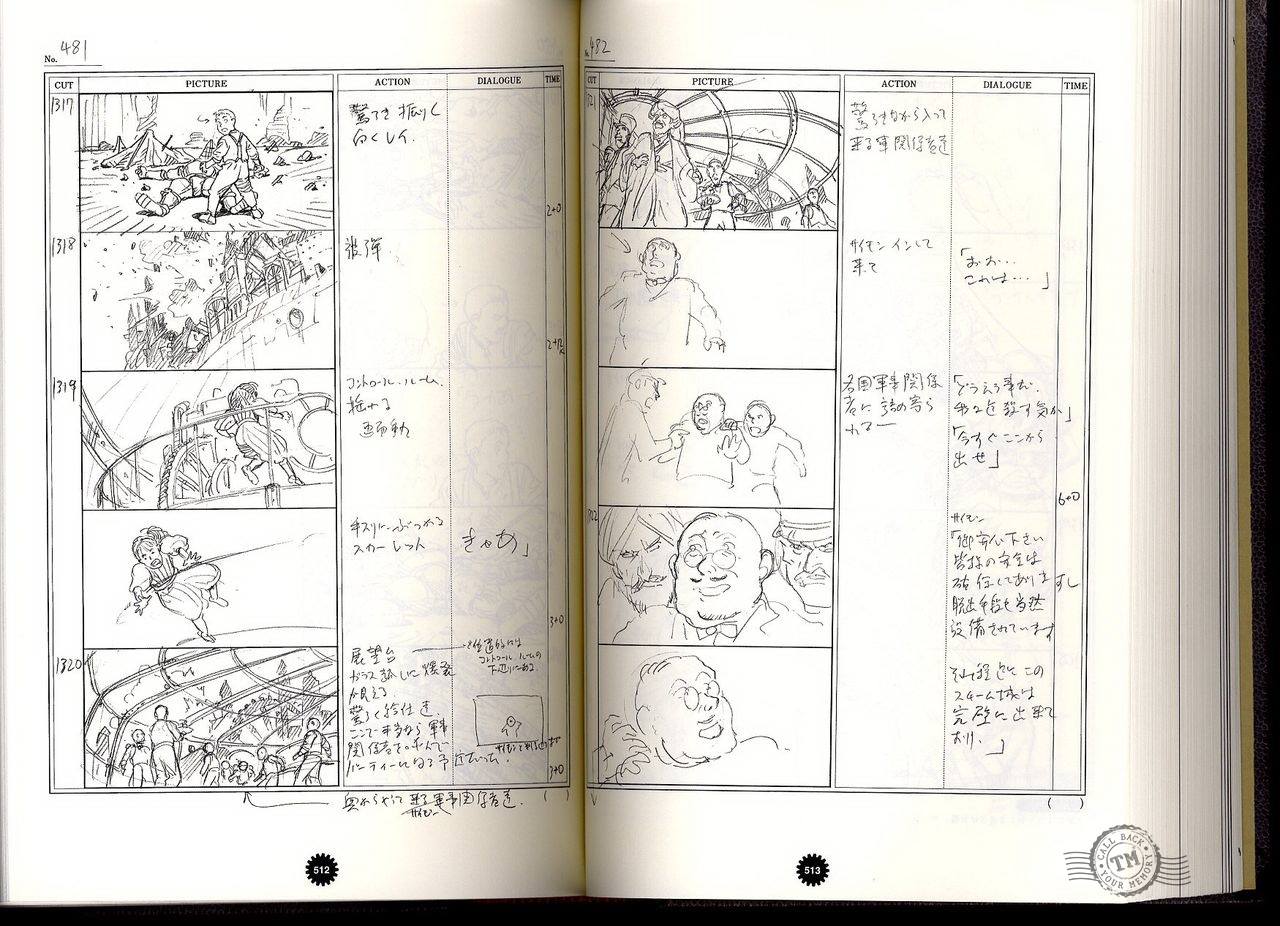 No. 481
CUT PICTURE ACTION DIALOGUE TIME
1317
驚いて振りく
向くレイ.
2+0
1318
被弾
2+12
1319
コントロール・ルーム.
揺れる
画面動
手スリにぶつかる
スカーレット
きゃあ」
3+0
1320
展望台
ガラス越しに爆発
が見える.
驚く給仕達.
ここで本当なら軍事
関係者を呼んで
パーティーになる予定だった.
位置的には
コントロールルームの
下辺りにある.
3+0
奥からやって来る軍事関係者達.
サイモン
( )
512
No. 482
CUT PICTURE ACTION DIALOGUE TIME
驚ろきながら入って
来る軍関係者達
サイモン インして
来て
「おお…
これは…」
各国軍事関係
者に詰め寄ら
れる―
「どういう事だ.
「今すぐここから
出せ」
6+0
サイモン
「御安心下さい
皆様の安全は
保証しておりますし
脱出手段も当然
設備されています
スチーム城は
完璧に出来て
おり.」
( )
513
CALL BACK
TM
YOUR MEMORY